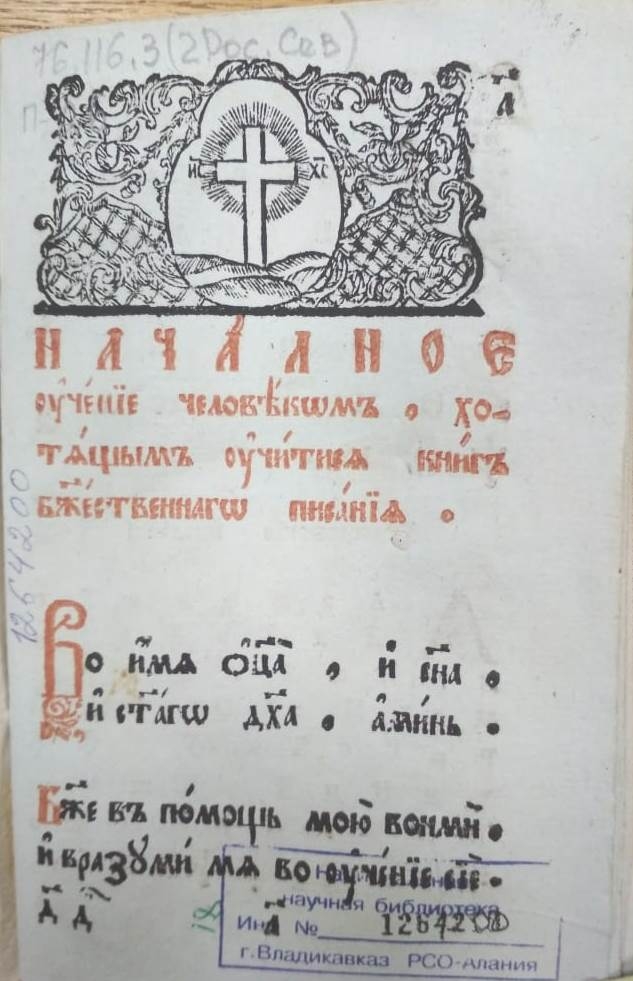 76.116.3(2Рос.Сев)
а҃
І҃С Х҃С
НАЧА́ЛНОЕ
ᲂу҆че́нїе человѣ́кѡмъ , хо-
тѧ́щымъ ᲂу҆чи́тисѧ кни́гъ
бж҃е́ственнагѡ писа́нїѧ .
Во и҆́мѧ ѻ҆ц҃а̀ , и҆ сн҃а ,
и҆ ст҃а́гѡ дх҃а , а҆ми́нь .
Бж҃е въ по́мощь мою̀ вонмѝ .
и҆ вразꙋми́ мѧ во ᲂу҆че́нїе сїѐ .
а҃
18
научная библиотека
Инв. № 1264200
г.Владикавказ РСО-Алания
1264200